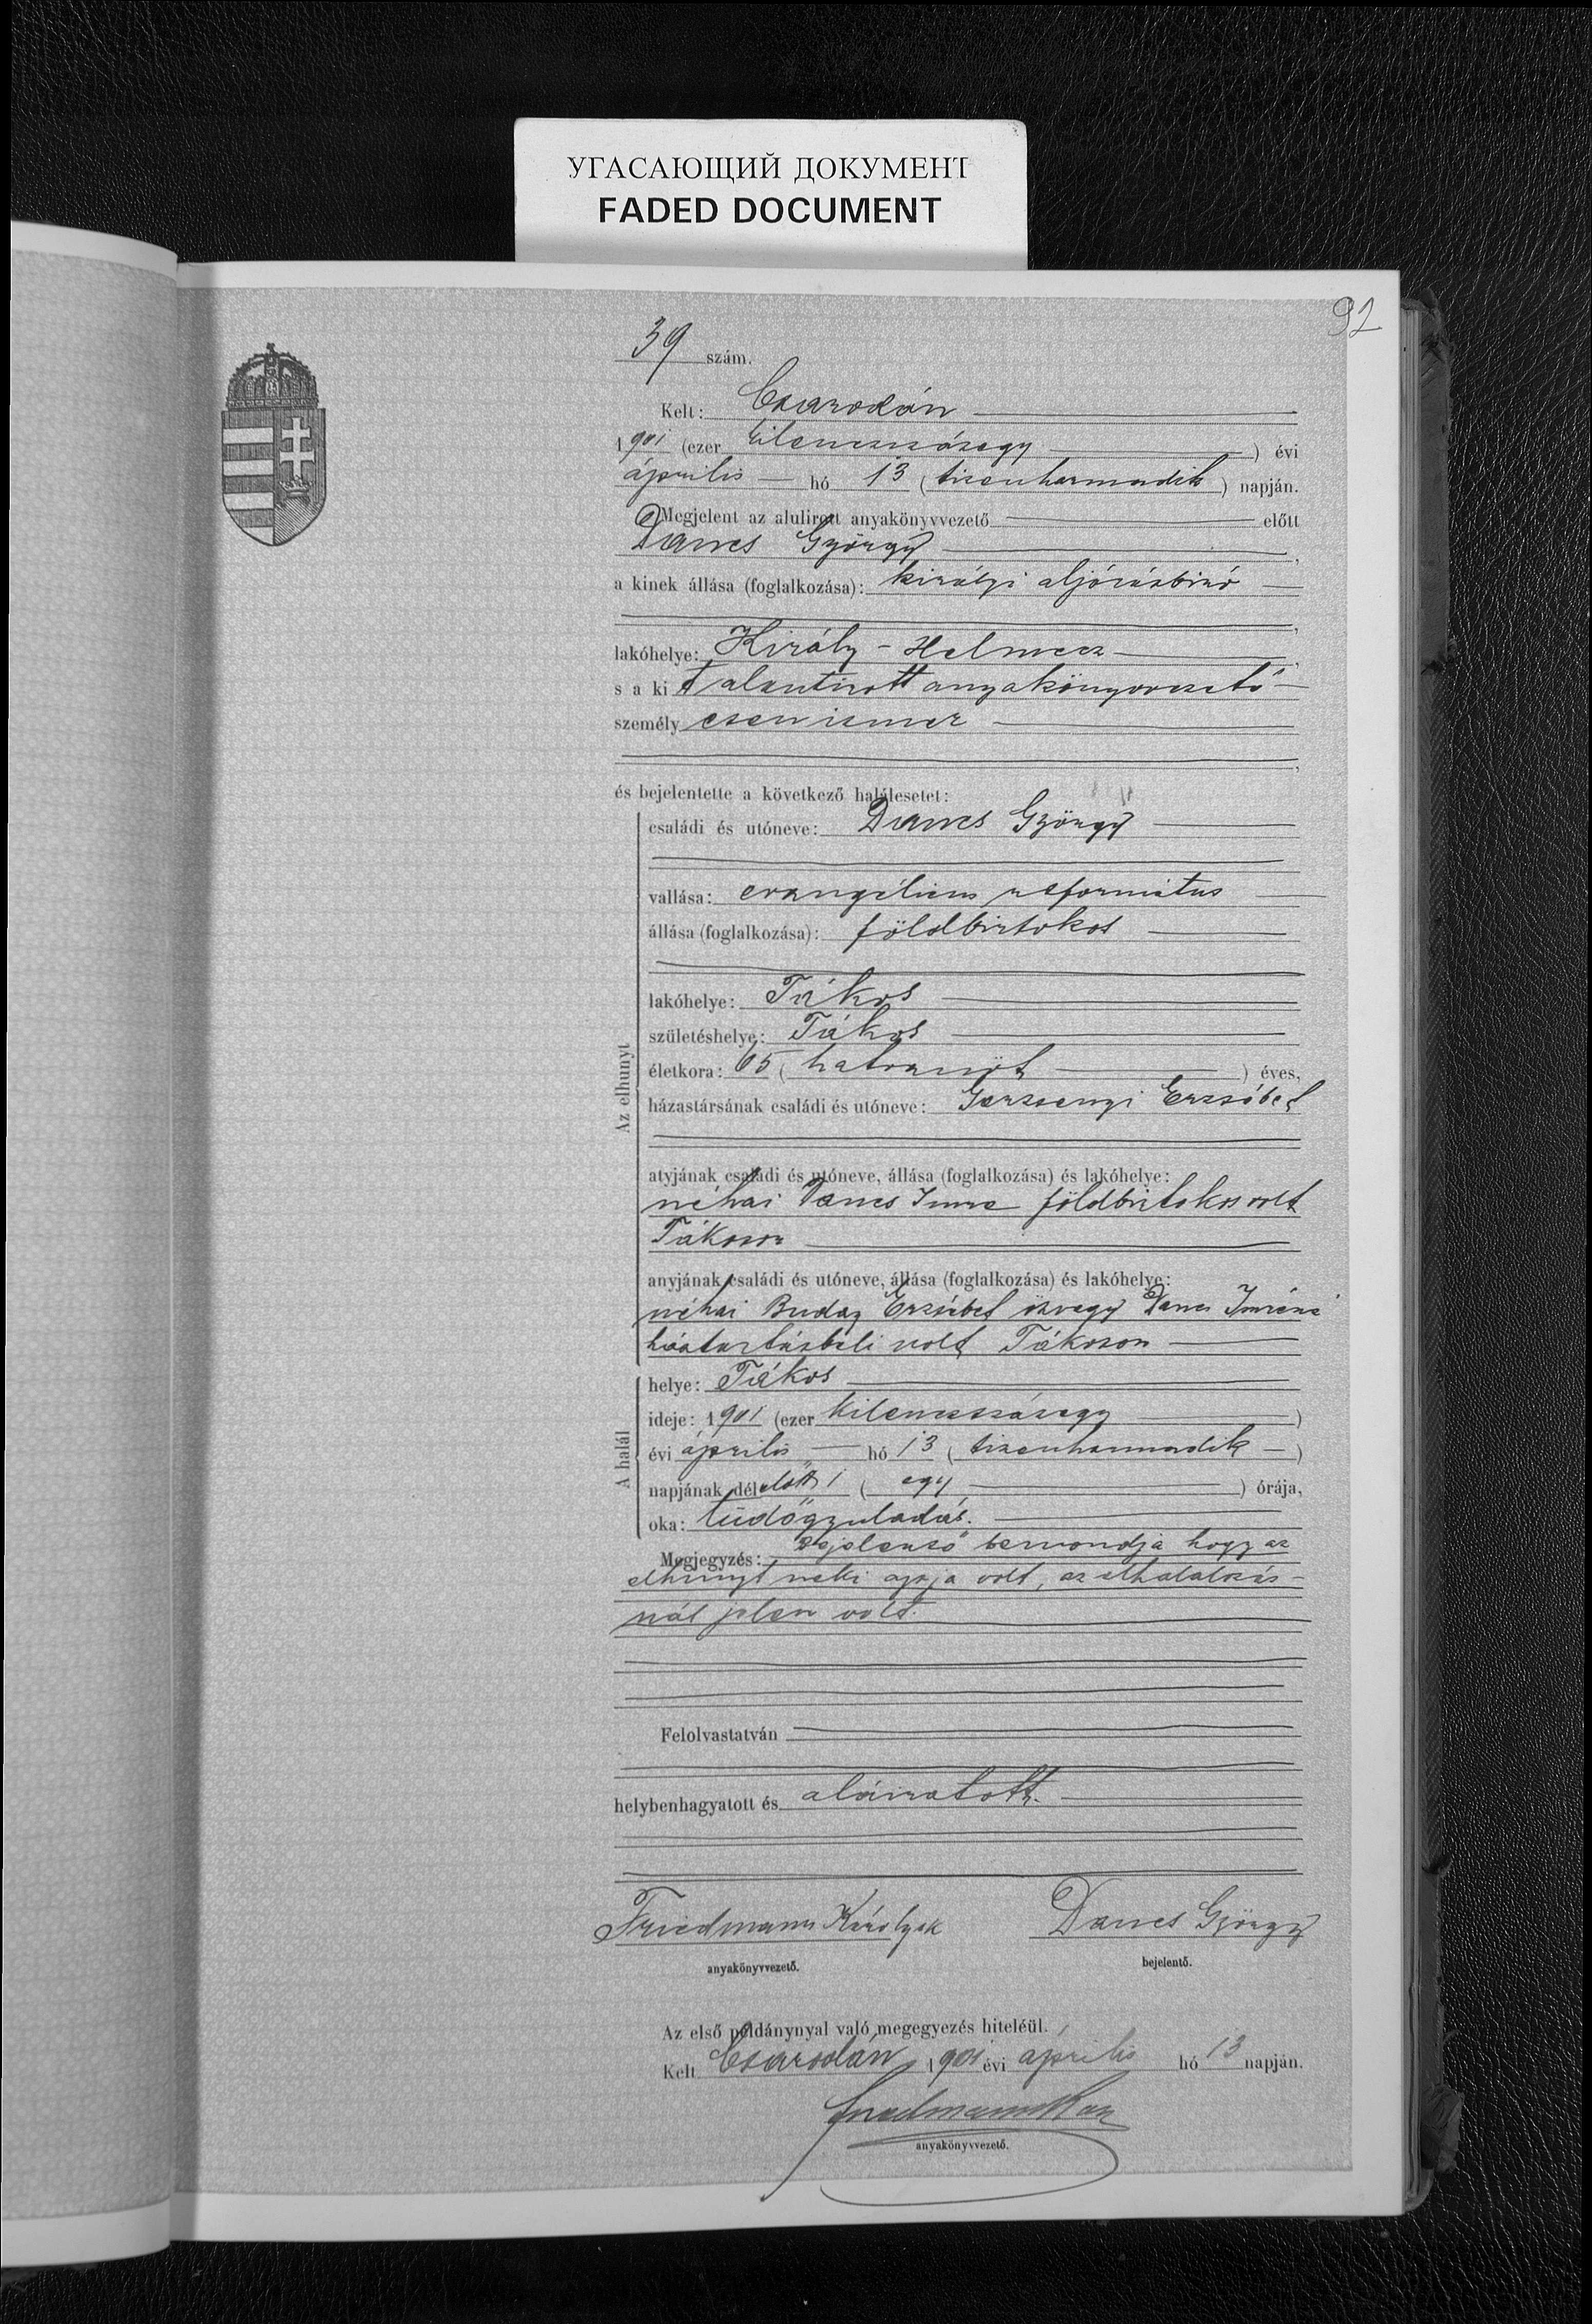 УГАСАЮЩИЙ ДОКУМЕНТ
FADED DOCUMENT
92
39 szám.
Kelt: Csarodán
1901 (ezer kilencszázegy ) évi
április hó 13 (tizenharmadik) napján.
Megjelent az alulirott anyakönyvvezető előtt
Dancs György ,
a kinek állása (foglalkozása): királyi aljárásbiró
,
lakóhelye: Király-Helmecz ,
s a ki t alantirott anyakönyvvezető
személy esen ismer
,
és bejelentette a következő halálesetet:
Az elhunyt
családi és utóneve: Dancs György
vallása: evangélicus református
állása (foglalkozása): földbirtokos
lakóhelye: Tákos
születéshelye: Tákos
életkora: 65 (hatvanöt ) éves,
házastársának családi és utóneve: Erzsébet
atyjának családi és utóneve, állása (foglalkozása) és lakóhelye:
néhai Dancs Imre földbirtokos volt
Tákoson
anyjának családi és utóneve, állása (foglalkozása) és lakóhelye:
néhai Buday Erzsébet özvegy Dancs Imréné
háztartásbeli volt Tákoson
A halál
helye: Tákos
ideje: 1901 (ezer kilencszázegy )
évi április hó 13 (tizenharmadik )
napjának délelőtt 1 ( egy ) órája,
oka: tüdőgyuladás.
Megjegyzés: Bejelentő bemondja hogy az
elhunyt neki apja volt, az elhalálozás-
nál jelen volt.
Felolvastatván
helybenhagyatott és aláiratott.
Friedmann Károly Dancs György
anyakönyvvezető. bejelentő.
Az első példánynyal való megegyezés hiteléül.
Kelt Csarodán, 1901 évi április hó 13 napján.
Friedmann
anyakönyvvezető.